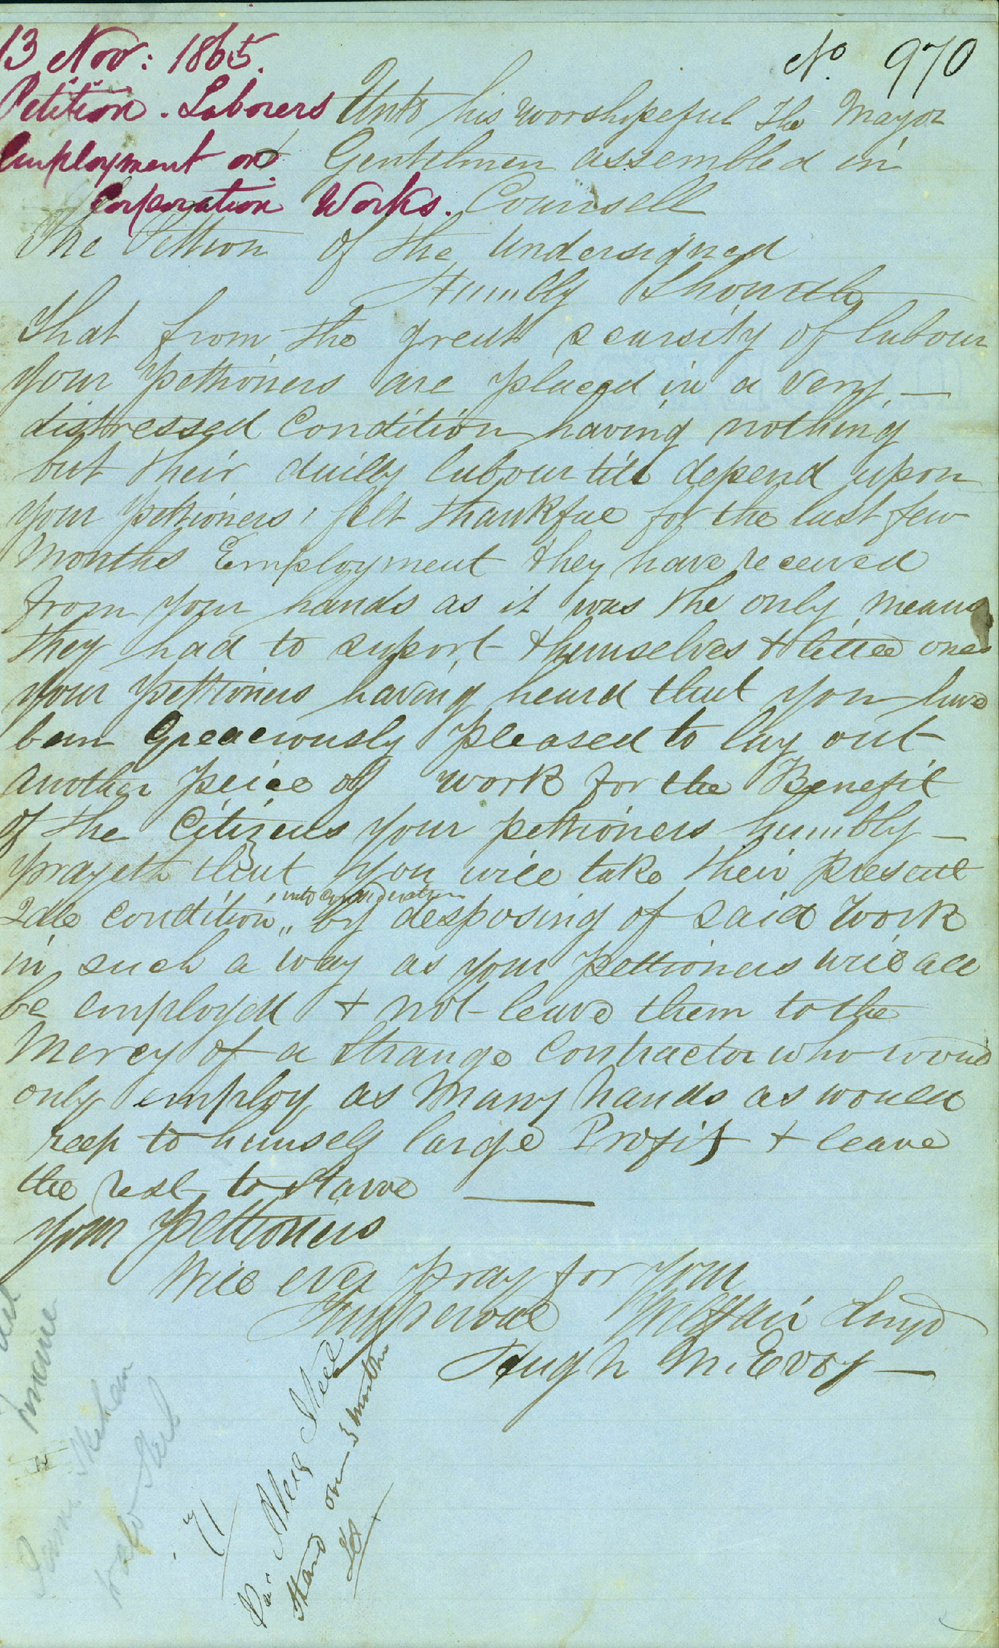 13 Nov: 1865.
No. 970
Petition. Laborers
Employment on
Corporation Works.
Unto his worshipeful The Mayor
Gentelmen assembled in
Counsell
The Petition of the Undersigned
Humbly Shoueth
That from the great scarsity of labour
your petitioners are placed in a very
distressed Condition having nothing
but their duilly labour till depend upon
your petitioners felt thankful for the last few
Months Employment they have received
from your hands as it was the only means
they had to suport themselves & little ones
your petitioners having heard that you have
been Greaciously pleased to lay out
another peice of work for the Benefit
of the Citizens your petitioners humbly
prayeth that you will take their present
Idle condition into consideration by desposing of said work
in such a way as your Petitioners will all
be employed & not leave them to the
Mercy of a Strange Contractor who would
only employ as Many hands as would
keep to himself large Profit & leave
the rest to starve
your Petitioners
Will ever pray for your
Hugh McEvoy
71
Alex Steel
Stand over 3 months